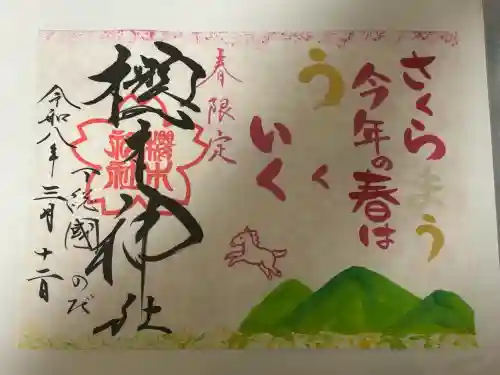 さくらまう
今年の春は
う
く
いく
春限定
櫻木神社
櫻木
神社
下総國 のだ
令和八年三月十二日